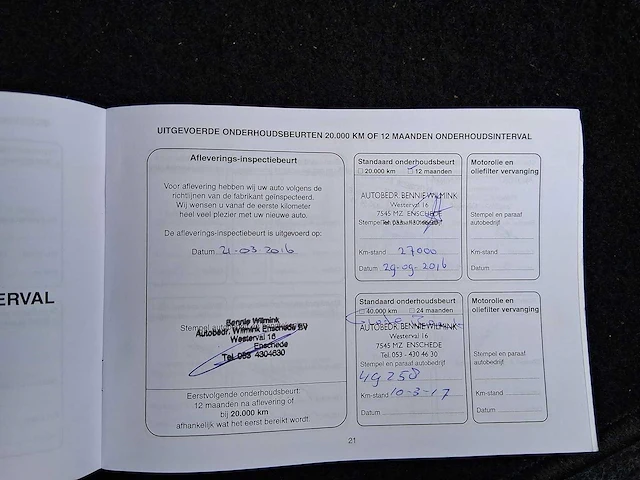 ERVAL
UITGEVOERDE ONDERHOUDSBEURTEN 20.000 KM OF 12 MAANDEN ONDERHOUDSINTERVAL
Afleverings-inspectiebeurt
Voor aflevering hebben wij uw auto volgens de
richtlijnen van de fabrikant geïnspecteerd.
Wij wensen u vanaf de eerste kilometer
heel veel plezier met uw nieuwe auto.
De afleverings-inspectiebeurt is uitgevoerd op:
Datum 21-03-2016
Bennie Wilmink
Autobedr. Wilmink Enschede BV
Westerval 16
Enschede
Tel. 053 4304630
Eerstvolgende onderhoudsbeurt:
12 maanden na aflevering of
bij 20.000 km
afhankelijk wat het eerst bereikt wordt.
Standaard onderhoudsbeurt
20.000 km 12 maanden
AUTOBEDR BENNIE WILMINK
Westerval 16
7545 MZ ENSCHEDE
Tel. 053 - 430 46 30
Km-stand 27000
Datum 29-09-2016
Motorolie en
oliefilter vervanging
Stempel en paraaf
autobedrijf
Km-stand
Datum
Standaard onderhoudsbeurt
40.000 km 24 maanden
AUTOBEDR. BENNIE WILMINK
Westerval 16
7545 MZ ENSCHEDE
Tel. 053 - 430 46 30
Stempel en paraaf autobedrijf
49258
Km-stand 10-3-17
Datum
Motorolie en
oliefilter vervanging
Stempel en paraaf
autobedrijf
Km-stand
Datum
21